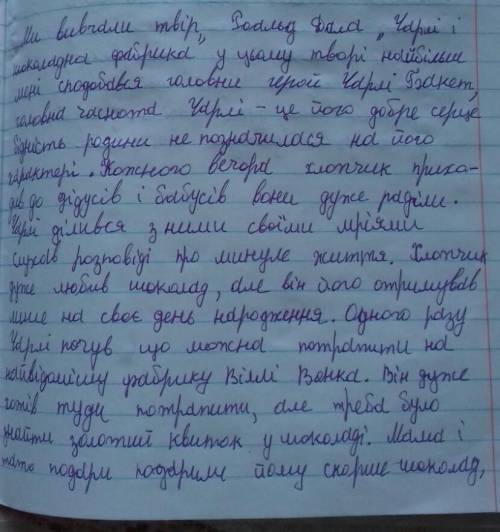 Ми вивчали твір„ Роальд Дала „Чарлі і
шоколадна фабрика у цьому творі найбільше
мені сподобався головни герой Чарлі Бакет,
головна часнота Чарлі – це його добре серце
бідність родини не позначилася на його
характері. Кожного вечора хлопчик прихо-
див до дідусів і бабусів вони дуже раділи.
Чарлі ділився з ними своїми мріями
слухав розповіді про минуле життя. Хлопчик
дуже любив шоколад, але він його отримував
лише на своє день народження. Одного разу
Чарлі почув що можна потрапити на
найвідомішу фабрику Віллі Вонка. Він дуже
хотів туди потрапити, але треба було
знайти золотий квиток у шоколаді. Мама і
тато подари подарили йому скорше шоколад,